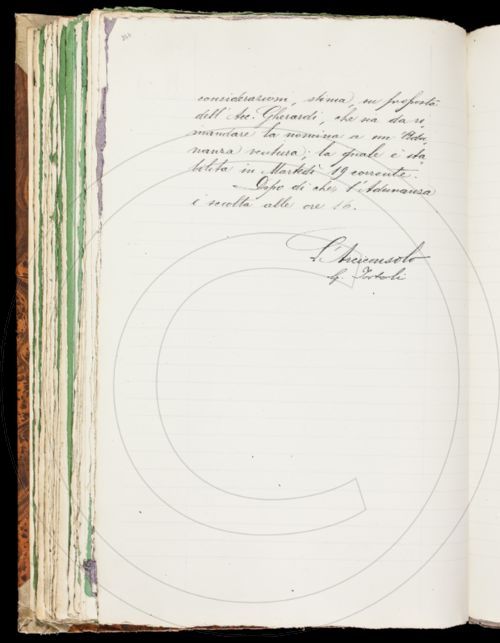 considerazioni, stima, su proposta
dell'Acc: Gherardi, che sia da ri
mandare la nomina a un'Adu
nanza ventura; la quale è sta
bilita in Martedì 19 corrente.
Dopo di che l'Adunanza
è sciolta alle ore 16.
L'Arciconsolo
G. Tortoli